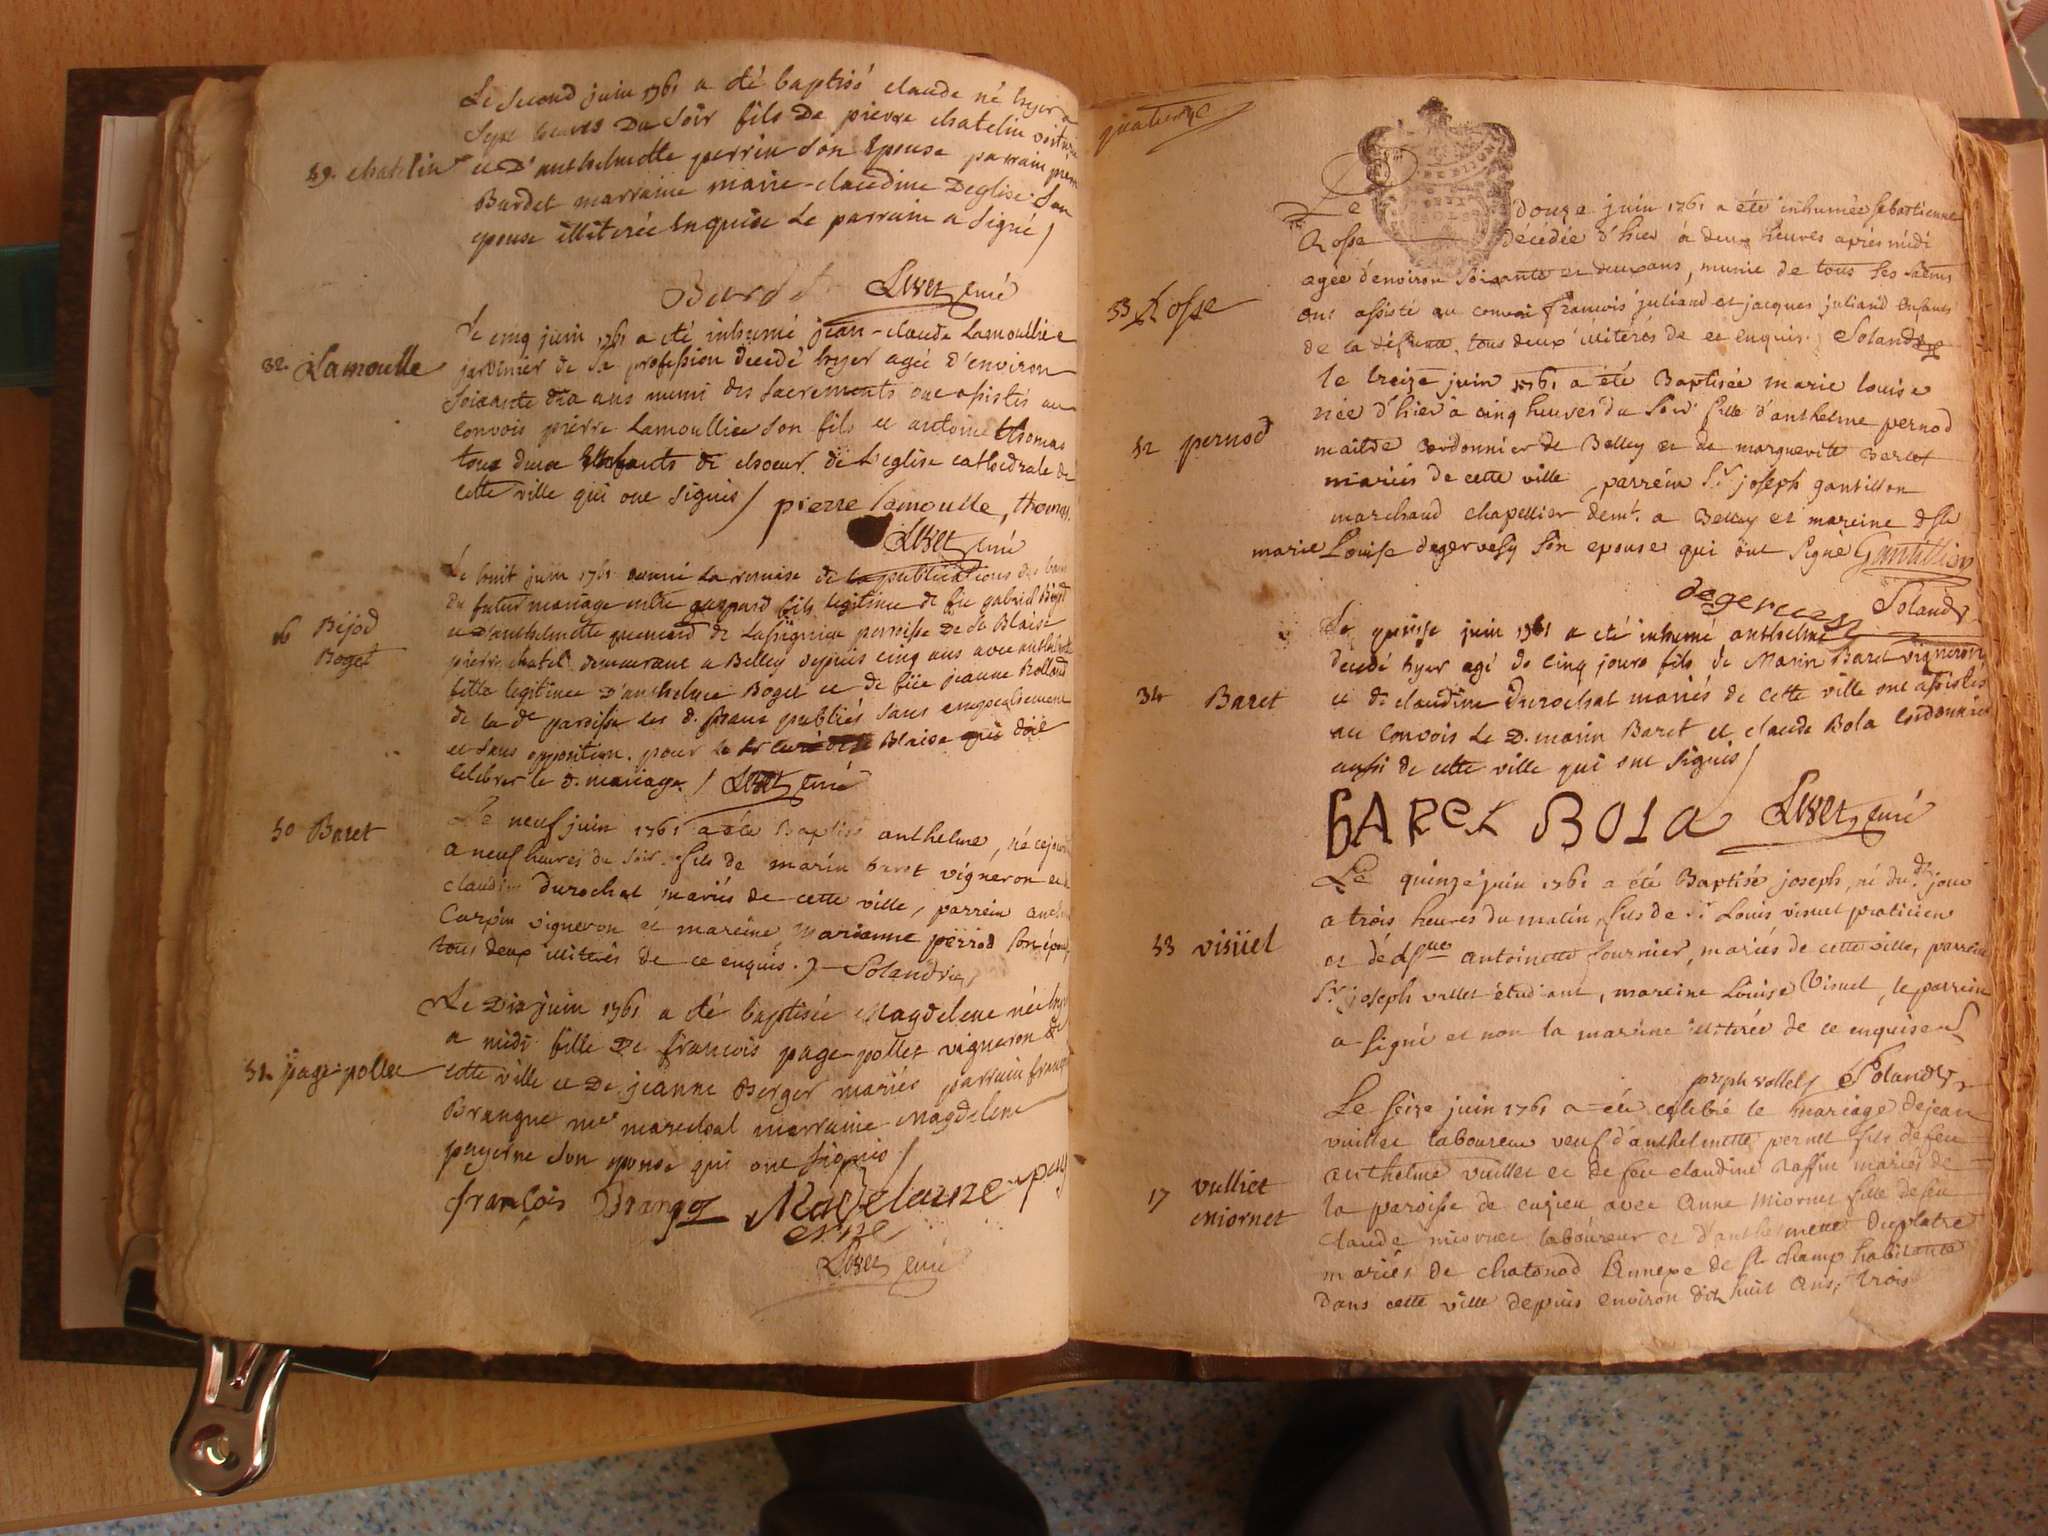 Le second juin 1761 a eté baptisé claude né hyer a
sept heures Du soir fils De pierre chatelin voiturier
49. chatelin et D'anthelmette perrin son Epouse parrain
Burdet marraine marie-claudine Deglise son
epouse illiterée Enquise Le parrain a signé /
Burdet Livet curé
Le cinq juin 1761 a eté inhumé jean-claude Lamoullie
32. Lamoulle jardinier de sa profession decedé hyer agé D'environ
soixante dix ans muni des sacrements ont assistés au
convois pierre Lamoullie son fils et antoine thomas
tous deux Enfants de choeur de L'eglise cathedrale de
cette ville qui ont signés / pierre lamoulle, thomas
Livet curé
Le huit juin 1761 la remise de la publications des bans
du futur mariage entre gaspard fils legitime de feu gabriel Bijod
16 Bijod et D'anthelmette de paroisse De St Blaise
Boget pierre chatel demeurant a Belley depuis cinq ans avec anthelmette
fille legitime D'anthelme Boget et de feüe jeanne Rolland
de la de paroisse les d. bans publiés sans empechement
et sans opposition pour le Blaise qui doit
celebrer le d. mariage / Livet curé
50 Baret Le neuf juin 1761 a été Baptisé anthelme, né ce jour
a neuf heures du soir fils de marin baret vigneron et de
claudine Durochat mariés de cette ville, parrein
Carpin vigneron et mareine marianne perrod son épouse
tous deux illiterés de ce enquis.) Solandry
Le Dix juin 1761 a eté baptisée Magdelene née hyer
a midi fille De françois page-pollet vigneron de
51. page-pollet cette ville et De jeanne Berger mariés parrain françois
Brangue me marechal marraine Magdelene
payerne son epouse qui ont signés /
françois Brangoz Madelaine pay
erne
Livet curé
quatorze
Le douze juin 1761 a été inhumée sebastienne
Rosse décédée d'hier à deux heures après midi
agée d'environ soixante et deux ans, munie de tous ses sacrements
33 Rosse ont assisté au convoi françois juliand et jacques juliand enfants
de la défunte, tous deux illiterés de ce enquis. Solandry
le treize juin 1761 a été Baptisée marie louise
née d'hier à cinq heures du soir fille d'anthelme pernod
52 pernod maitre cordonnier de Belley et de marguerite Berlet
mariés de cette ville, parrein Sr joseph gantillon
marchand chapellier demt. a Belley et mareine dlle
marie Louise degervesy son epouse qui ont signé Gantillion
degervesy Solandry
Le quinze juin 1761 a eté inhumé anthelme
decedé hyer agé de cinq jours fils de Marin Baret vigneron
34 Baret et de claudine Durochat mariés de cette ville ont assistés
au convois Le D. marin Baret et claude Bola cordonnier
aussi de cette ville qui ont signés /
BAReT BOLa Livet curé
Le quinze juin 1761 a été Baptisé joseph, né du dt jour
a trois heures du matin, fils de Sr Louis visuel praticien
53 visüel et de antoinette fournier, mariés de cette ville, parrein
Sr joseph vallet étudiant, mareine Louise Visuel, le parrein
a signé et non la mareine illiterée de ce enquise
joseph vallet Solandry
Le seize juin 1761 a été celebré le mariage de jean
vuillet laboureur veuf d'anthelmette pernet fils de feu
17 vulliet anthelme vuillet et de feu claudine Raffin mariés de
Miornet la paroisse de cuzieu avec Anne Miornet fille de feu
Claude miornet laboureur et d'anthelmette Duplatre
mariés de chatonod Annexe de St champ habitante
dans cette ville depuis environ dix huit ans, trois